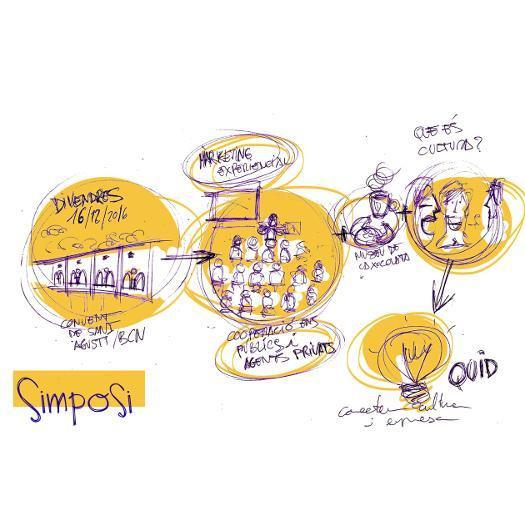 DIVENDRES
16/12/2016
CONVENT
DE SANT
AGUSTÍ/BCN
MÀRKETING
EXPERIENCIAL
COOPERACIÓ ENS
PÚBLICS i
AGENTS PRIVATS
MUSEU DE
LA XOCOLATA
QUE ÉS
CULTURA?
QUID
conectem cultura
i empresa
SimpoSi